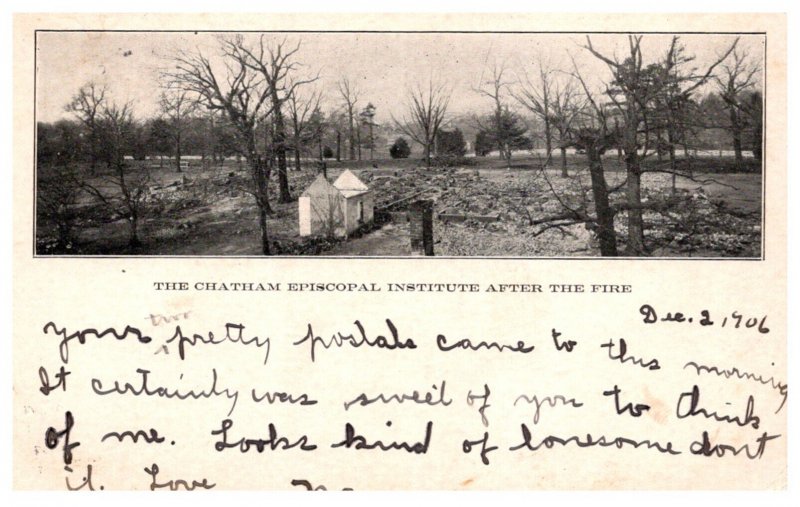 THE CHATHAM EPISCOPAL INSTITUTE AFTER THE FIRE
Dec. 2, 1906
Your two pretty postals came to this morning
It certainly was sweet of you to think
of me. Looks kind of lonesome dont
it. Love